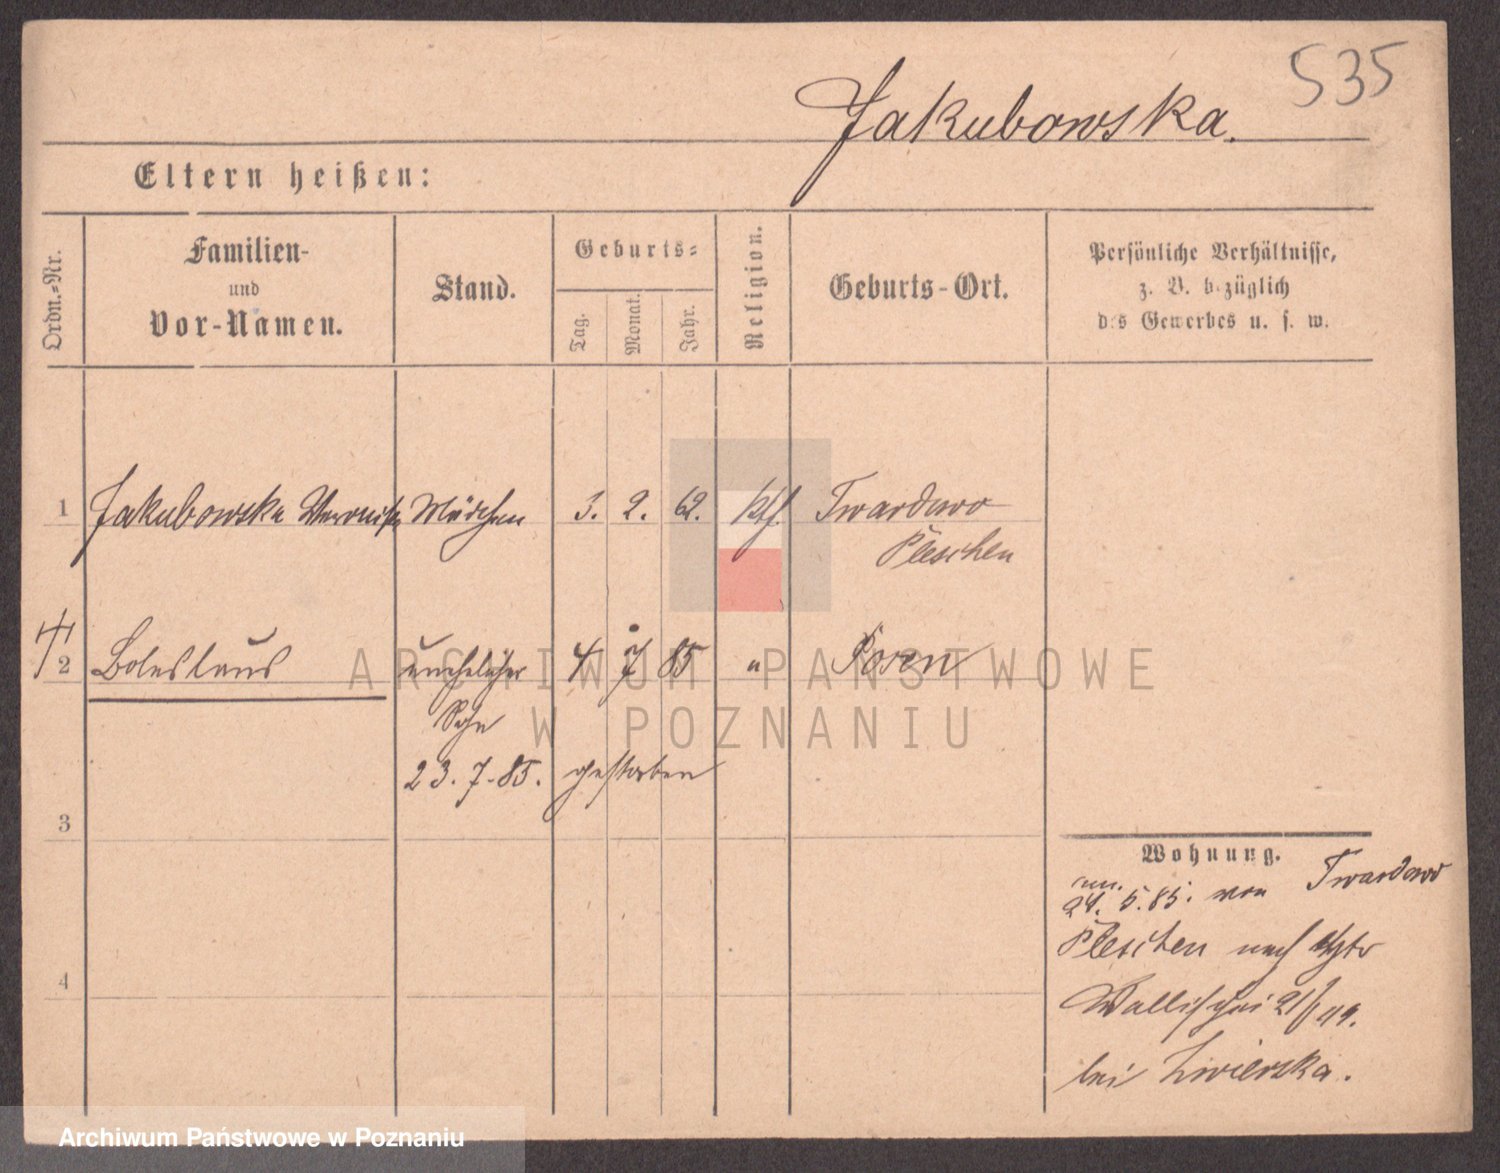 535
Jakubowska.
Eltern heißen:
Ordn.-Nr.
Familien-
und
Vor-Namen.
Stand.
Geburts-
Tag.
Monat.
Jahr.
Religion.
Geburts-Ort.
Persönliche Verhältnisse,
z. B. bezüglich
des Gewerbes u. s. w.
1 Jakubowska Veronika Mädchen 3. 2. 62. kth. Twardowo
Pleschen
2 Boleslaus unehelicher 4 7 85 " Posen
Sohn
23. 7. 85. gestorben
3
4
Wohnung.
24. 5. 85. von Twardowo
Pleschen nach
Wallischei
bei Zwierska.
ARCHIWUM PAŃSTWOWE
W POZNANIU
Archiwum Państwowe w Poznaniu